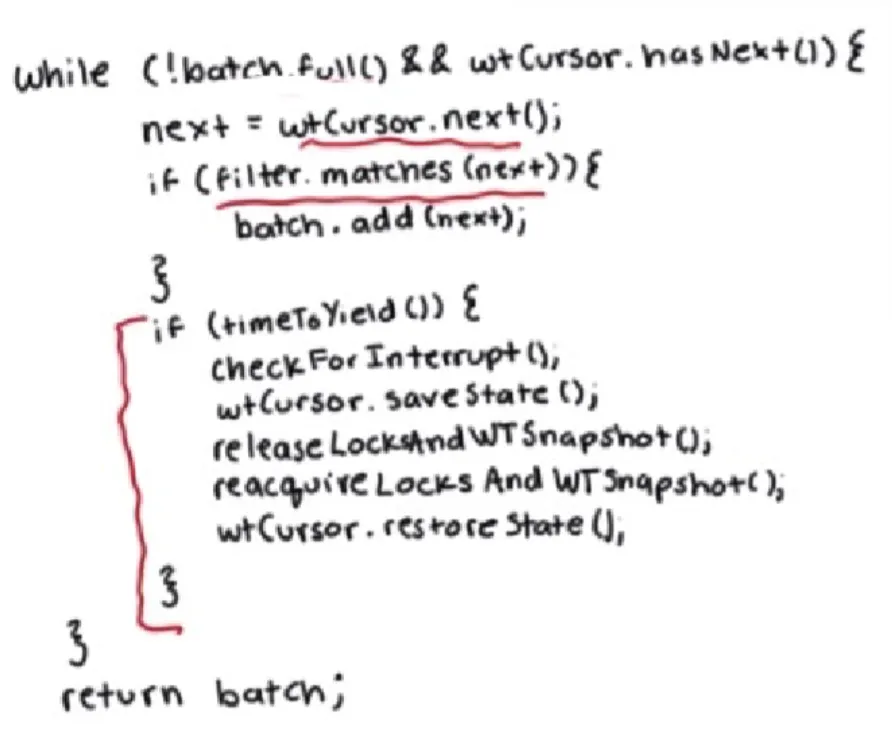 while (!batch.full() && wtCursor.hasNext()) {
next = wtCursor.next();
if (filter.matches(next)){
batch.add(next);
}
if (timeToYield()) {
checkForInterrupt();
wtCursor.saveState();
releaseLocksAndWTSnapshot();
reacquireLocksAndWTSnapshot();
wtCursor.restoreState();
}
}
return batch;